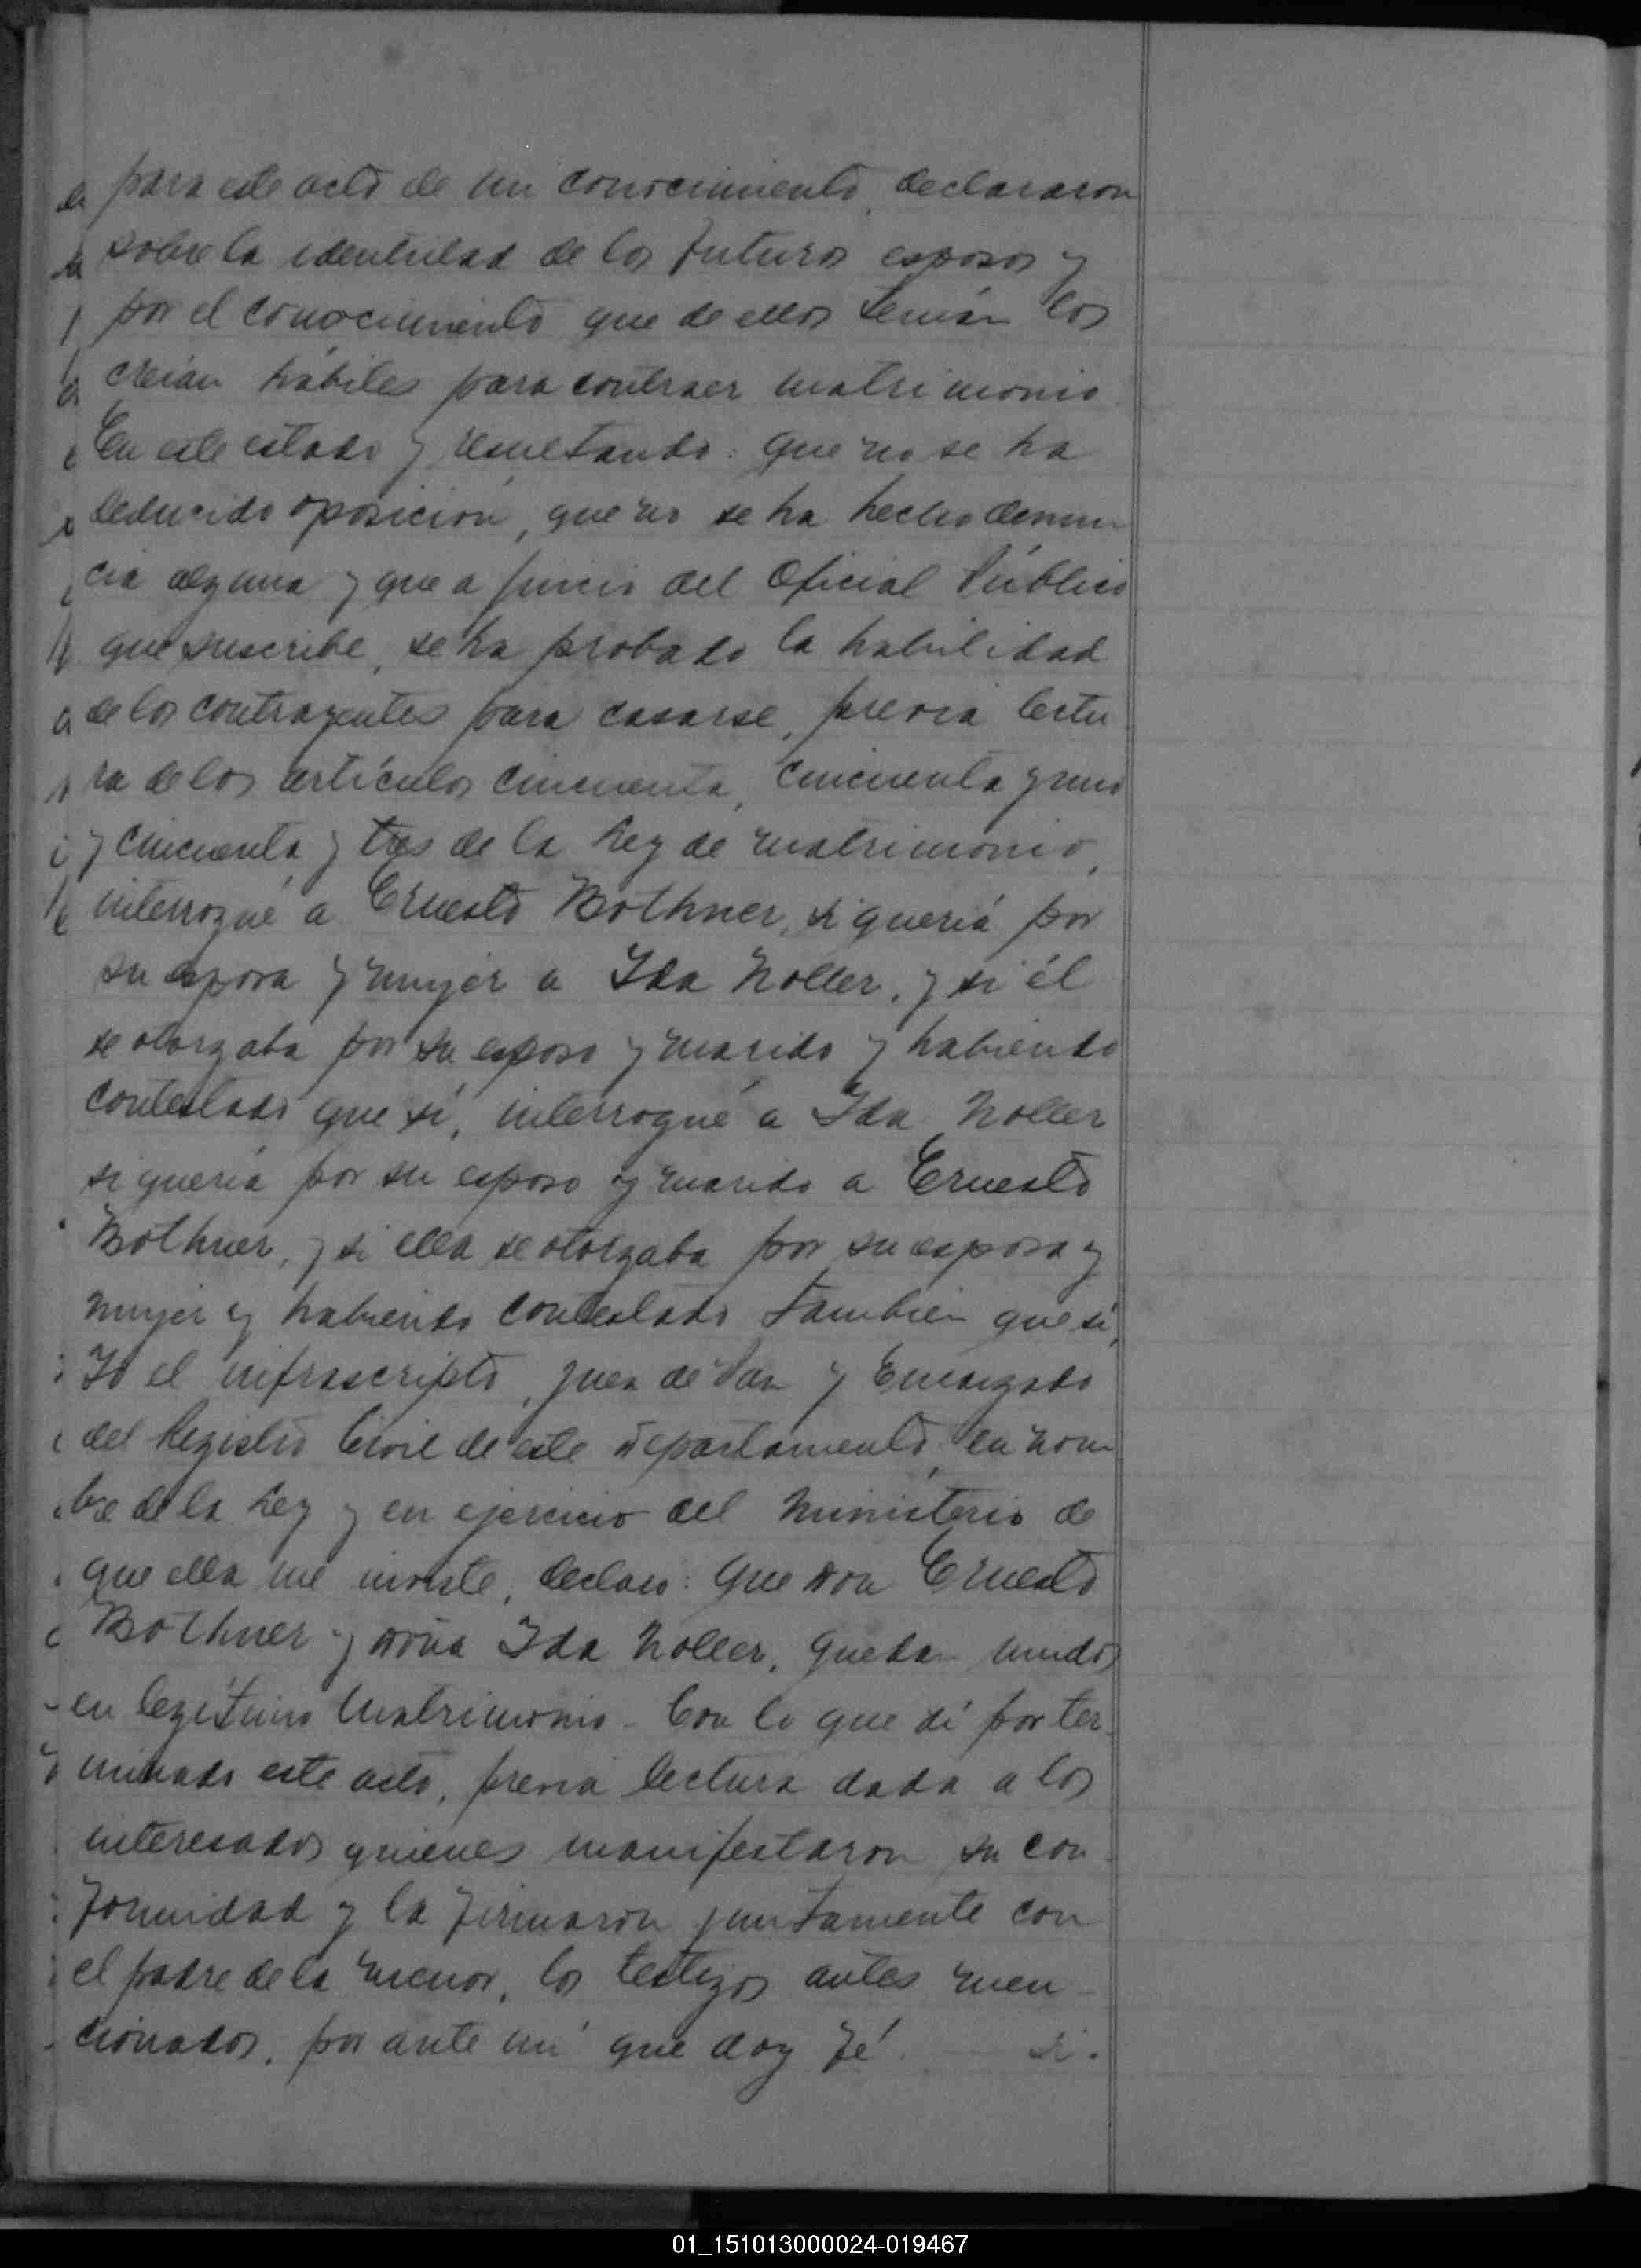 para este acto de mi conocimiento, declararon
sobre la identidad de los futuros esposos y
por el conocimiento que de ellos tenían los
creían hábiles para contraer matrimonio
En este estado y resultando: que no se ha
deducido oposición, que no se ha hecho denun
cia alguna y que a juicio del Oficial Público
que suscribe, se ha probado la habilidad
de los contrayentes para casarse, previa lectu
ra de los artículos cincuenta, cincuenta y uno
y cincuenta y tres de la Ley de matrimonio,
interrogué a Ernesto Bothner, si quería por
su esposa y mujer a Ida Noller, y si él
se otorgaba por su esposo y marido y habiendo
contestado que sí, interrogué a Ida Noller
si quería por su esposo y marido a Ernesto
Bothner, y si ella se otorgaba por su esposa y
mujer y habiendo contestado también que sí,
Yo el infrascripto, Juez de Paz y Encargado
del Registro Civil de este Departamento, en nom
bre de la Ley y en ejercicio del Ministerio de
que ella me inviste, declaro: Que Don Ernesto
Bothner y Doña Ida Noller, quedan unidos
en legítimo Matrimonio - Con lo que dí por ter
minado este acto, previa lectura dada a los
interesados quienes manifestaron su con
formidad y la firmaron juntamente con
el padre de la menor, los testigos antes men
cionados, por ante mí que doy fé.
01_151013000024-019467